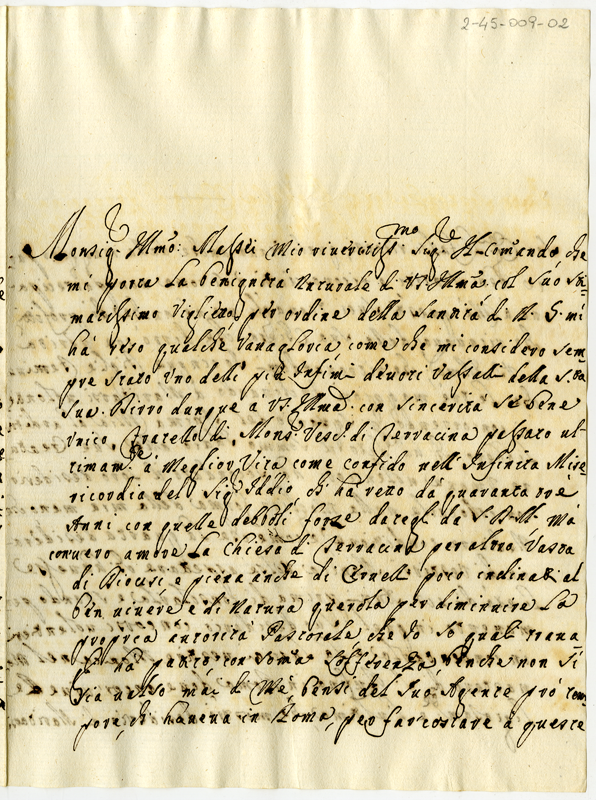 2-45-009-02
Monsig. Illmo: Massei mio riveritiss.mo Sig.re Il Comando, che
mi porta la benignità naturale di V.S. Illma col suo sti=
matissimo viglietto, per ordine della Santità di N. S. mi
hà reso qualche vanagloria, come che mi considero sem
pre stato uno delli più infimi devoti Vassalli della S.tà
Sua. Dirrò dunque à V.S. Illma con sincerità se bene
unico fratello di Mons. Vesc. di Terracina passato ul=
timam.te à meglior Vita come confido nell'Infinita Mise=
ricordia del Sig.re Iddio, ch'hà retto dà quaranta trè
Anni con quelle debboli forze dategli da S. D. M. mà
con vero amore la Chiesa di Terracina per altro vasta
di Diocesi, e piena anche di Cervelli poco inclinati al
ben vivere e di natura querola per diminuire la
propria autorità Pastorale che do
hà patito con somma sofferenza, benche non si
sia valso mai di Mè, bensì del suo Agente prò tem=
pore, ch'haveva in Roma, per far costare à queste